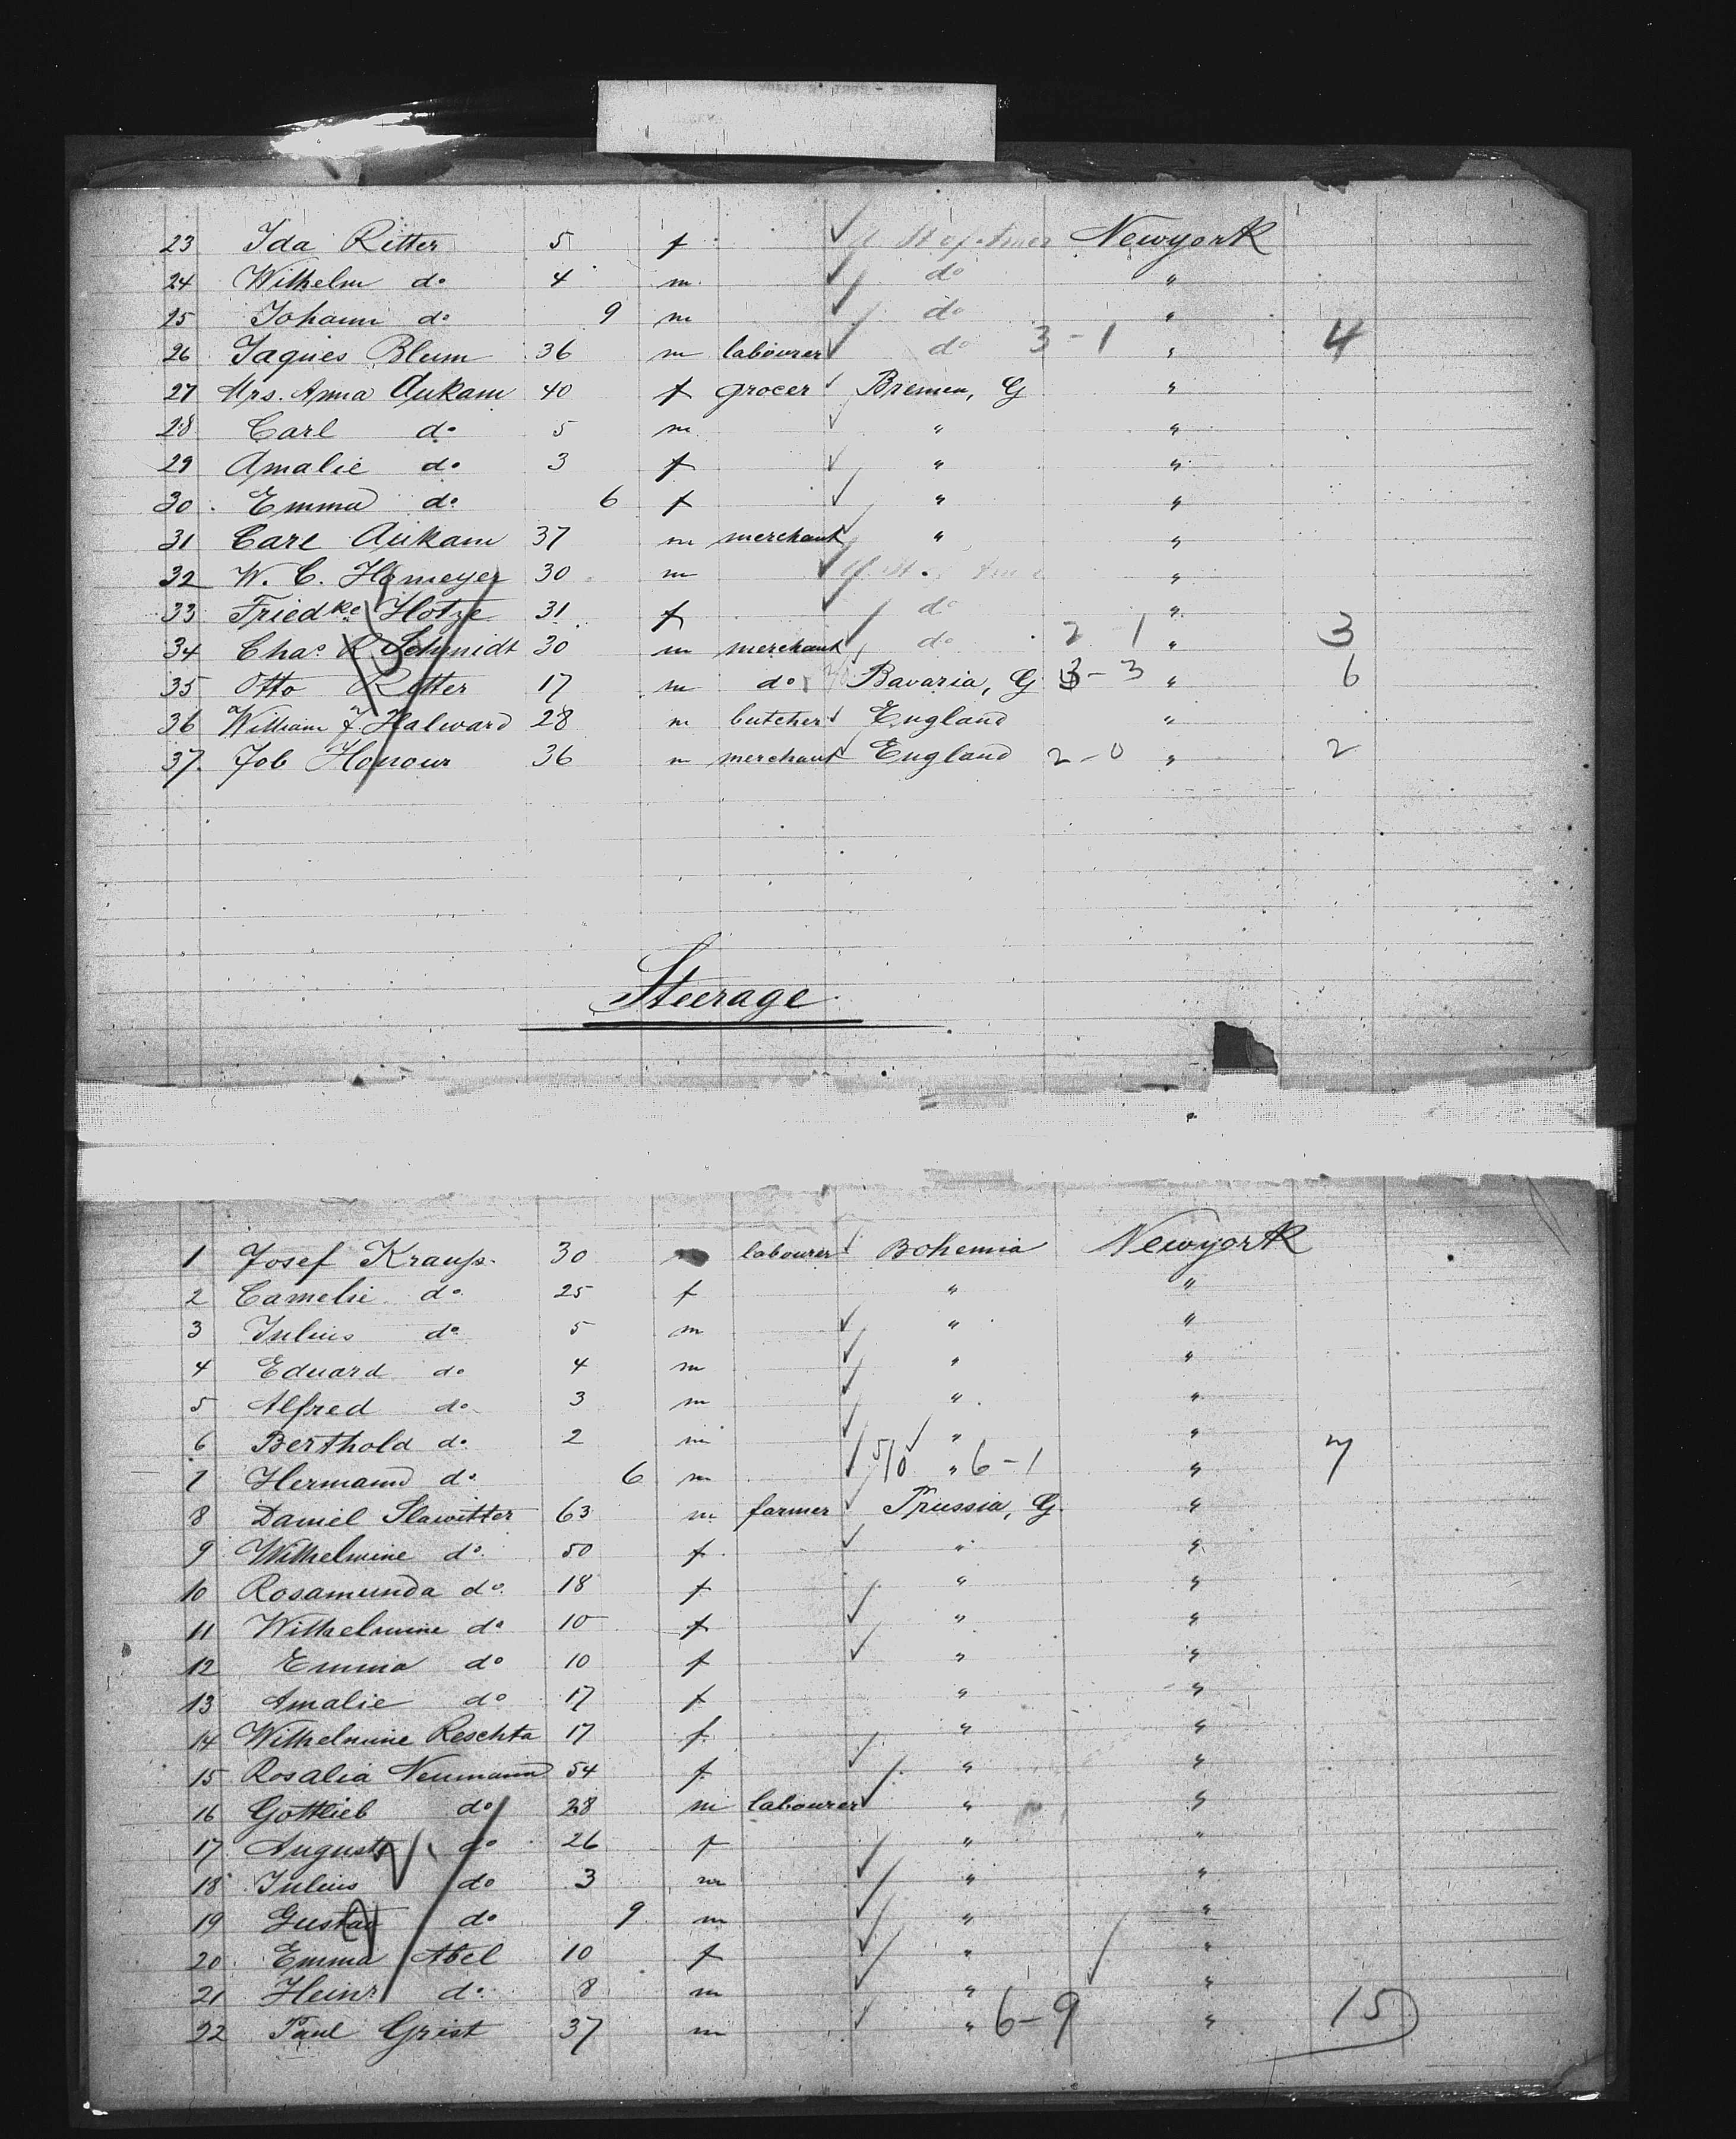 23 Ida Ritter 5 f U. St. of Amer Newyork
24 Wilhelm do 4 m do "
25 Johann do 9 m do "
26 Jaques Blum 36 m labourer do 3-1 " 4
27 Mrs. Anna Aukam 40 f grocer Bremen, G "
28 Carl do 5 m " "
29 Amalie do 3 f " "
30 Emma do 6 f " "
31 Carl Aukam 37 m merchant " "
32 W. C. Homeyer 30 m U. St. "
33 Friedke Hotze 31 f do "
34 Chas R Schmidt 30 m merchant do 2 1 " 3
35 Otto Ritter 17 m do Bavaria, G 3-3 " 6
36 William F Halward 28 m butcher England "
37. Job Honour 36 m merchant England 2-0 " 2
Steerage
1 Josef Krauß 30 labourer Bohemia Newyork
2 Camelie do 25 f " "
3 Julius do 5 m " "
4 Eduard do 4 m " "
5 Alfred do 3 m " "
6 Berthold do 2 m " "
7 Hermann do 6 m 5/0 " 6-1 " 7
8 Daniel Slawitter 63 m farmer Prussia, G "
9 Wilhelmine do 50 f " "
10 Rosamunda do 18 f " "
11 Wilhelmine do 10 f " "
12 Emma do 10 f " "
13 Amalie do 17 f " "
14 Wilhelmine Reschta 17 f " "
15 Rosalia Neumann 54 f " "
16 Gottlieb do 28 m labourer " "
17 Auguste do 26 f " "
18 Julius do 3 m " "
19 Gustav do 9 m " "
20 Emma Abel 10 f " "
21 Heinr do 8 m " "
22 Paul Grist 37 m " 6-9 " 15